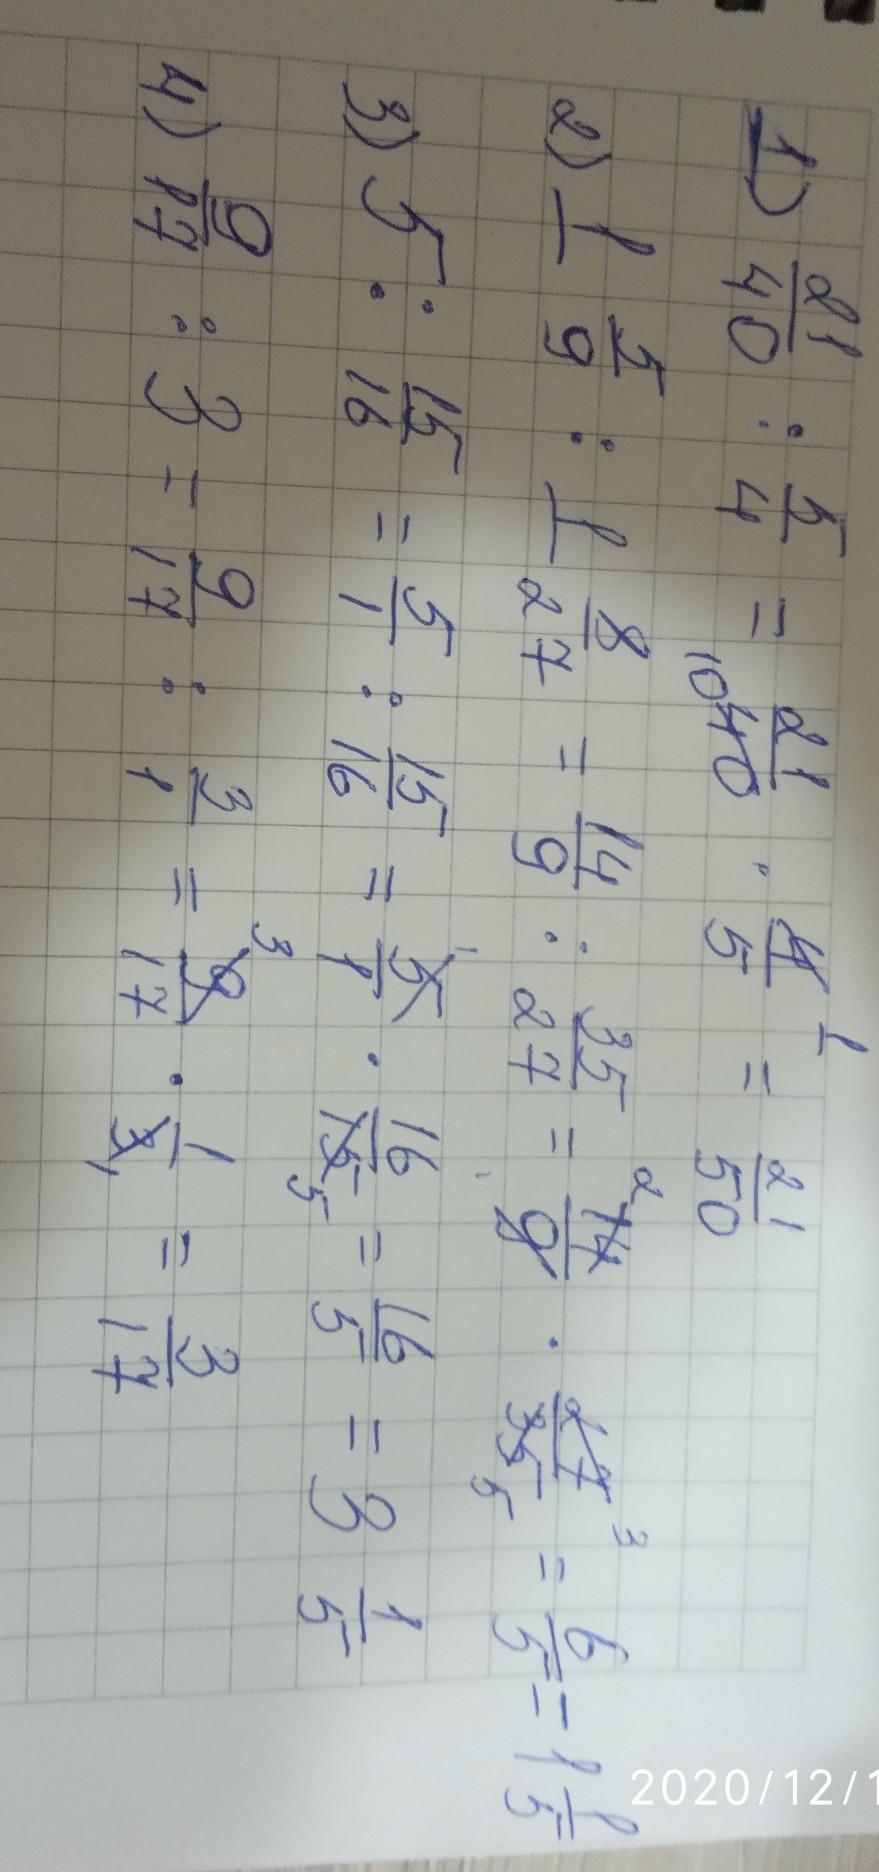 1) 21/40 : 5/4 = 21/40 10 · 4/5 1 = 21/50
2) 1 5/9 : 1 8/27 = 14/9 : 35/27 = 2 14/9 1 · 27/35 3 5 = 6/5 = 1 1/5
3) 5 : 15/16 = 5/1 : 15/16 = 1 5/1 · 16/15 5 = 16/5 = 3 1/5
4) 9/17 : 3 = 9/17 : 3/1 = 3 9/17 · 1/3 1 = 3/17
2020/12/1